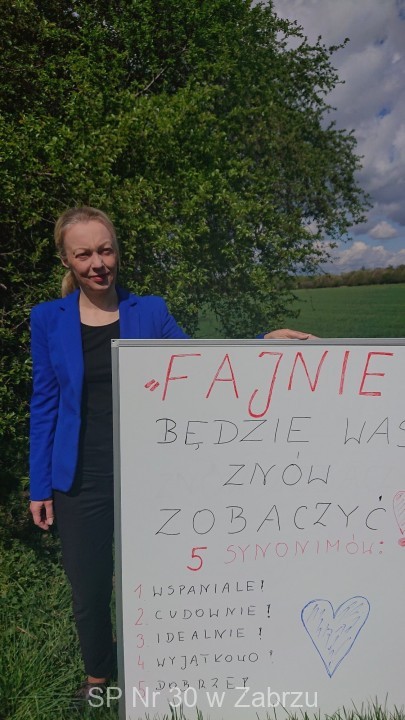 „FAJNIE
BĘDZIE WAS
ZNÓW
ZOBACZYĆ
5 SYNONIMÓW:
1 WSPANIALE!
2. CUDOWNIE!
3 IDEALNIE!
4 WYJĄTKOWO!
5 DOBRZE!
SP Nr 30 w Zabrzu